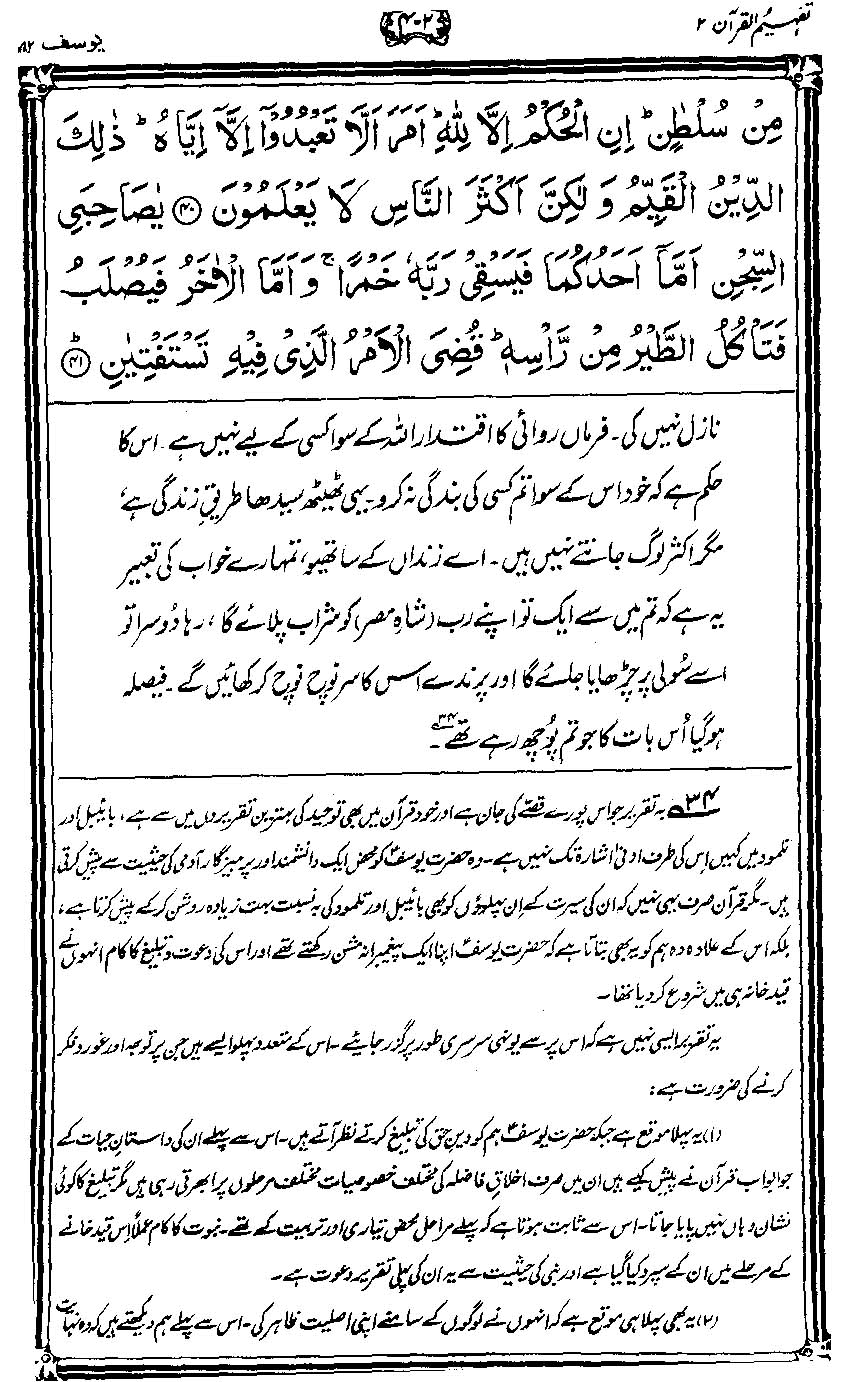 تفہیم القرآن ۲
۴۰۲
یوسف ۱۲
مِنْ سُلْطٰنٍ ؕ اِنِ الْحُكْمُ اِلَّا لِلّٰهِ ؕ اَمَرَ اَلَّا تَعْبُدُوْۤا اِلَّاۤ اِیَّاهُ ؕ ذٰلِكَ
الدِّیْنُ الْقَیِّمُ وَ لٰكِنَّ اَكْثَرَ النَّاسِ لَا یَعْلَمُوْنَ ﴿۴۰﴾ یٰصَاحِبَیِ
السِّجْنِ اَمَّاۤ اَحَدُكُمَا فَیَسْقِیْ رَبَّهٗ خَمْرًا ۚ وَ اَمَّا الْاٰخَرُ فَیُصْلَبُ
فَتَاْكُلُ الطَّیْرُ مِنْ رَّاْسِهٖ ؕ قُضِیَ الْاَمْرُ الَّذِیْ فِیْهِ تَسْتَفْتِیٰنِ ﴿۴۱﴾ؕ
نازل نہیں کی۔ فرماں روائی کا اقتدار اللہ کے سوا کسی کے لیے نہیں ہے۔ اس کا
حکم ہے کہ خود اس کے سوا تم کسی کی بندگی نہ کرو۔ یہی ٹھیٹھ سیدھا طریقِ زندگی ہے،
مگر اکثر لوگ جانتے نہیں ہیں۔ اے زنداں کے ساتھیو، تمہارے خواب کی تعبیر
یہ ہے کہ تم میں سے ایک تو اپنے رب (شاہِ مصر) کو شراب پلائے گا، رہا دُوسرا تو
اسے سُولی پر چڑھایا جائے گا اور پرندے اس کا سر نوچ نوچ کر کھائیں گے۔ فیصلہ
ہو گیا اُس بات کا جو تم پوچھ رہے تھے۳۴۔
۳۴؎ یہ تقریر جو اس پورے قصّے کی جان ہے اور خود قرآن میں بھی توحید کی بہترین تقریروں میں سے ہے، بائیبل اور
تلمود میں کہیں اِس کی طرف ادنیٰ اشارہ تک نہیں ہے۔ وہ حضرت یوسفؑ کو محض ایک دانشمند اور پرہیزگار آدمی کی حیثیت سے پیش کرتی
ہیں۔ مگر قرآن صرف یہی نہیں کہ ان کی سیرت کے اِن پہلوؤں کو بھی بائیبل اور تلمود کی بہ نسبت بہت زیادہ روشن کر کے پیش کرتا ہے،
بلکہ اس کے علاوہ وہ ہم کو یہ بھی بتاتا ہے کہ حضرت یوسفؑ اپنا ایک پیغمبرانہ مشن رکھتے تھے اور اس کی دعوت و تبلیغ کا کام انہوں نے
قید خانہ ہی میں شروع کر دیا تھا۔
یہ تقریر ایسی نہیں ہے کہ اس پر سے یونہی سرسری طور پر گزر جائیے۔ اس کے متعدد پہلو ایسے ہیں جن پر توجہ اور غور و فکر
کرنے کی ضرورت ہے:
(۱) یہ پہلا موقع ہے جبکہ حضرت یوسفؑ ہم کو دینِ حق کی تبلیغ کرتے نظر آتے ہیں۔ اس سے پہلے ان کی داستانِ حیات کے
جو ابواب قرآن نے پیش کیے ہیں ان میں صرف اخلاقِ فاضلہ کی مختلف خصوصیات مختلف مرحلوں پر ابھرتی رہی ہیں مگر تبلیغ کا کوئی
نشان وہاں نہیں پایا جاتا۔ اس سے ثابت ہوتا ہے کہ پہلے مراحل محض تیاری اور تربیت کے تھے۔ نبوت کا کام عملاً اِس قید خانے
کے مرحلے میں ان کے سپرد کیا گیا ہے اور نبی کی حیثیت سے یہ ان کی پہلی تقریر دعوت ہے۔
(۲) یہ بھی پہلا ہی موقع ہے کہ انہوں نے لوگوں کے سامنے اپنی اصلیت ظاہر کی۔ اس سے پہلے ہم دیکھتے ہیں کہ وہ نہایت